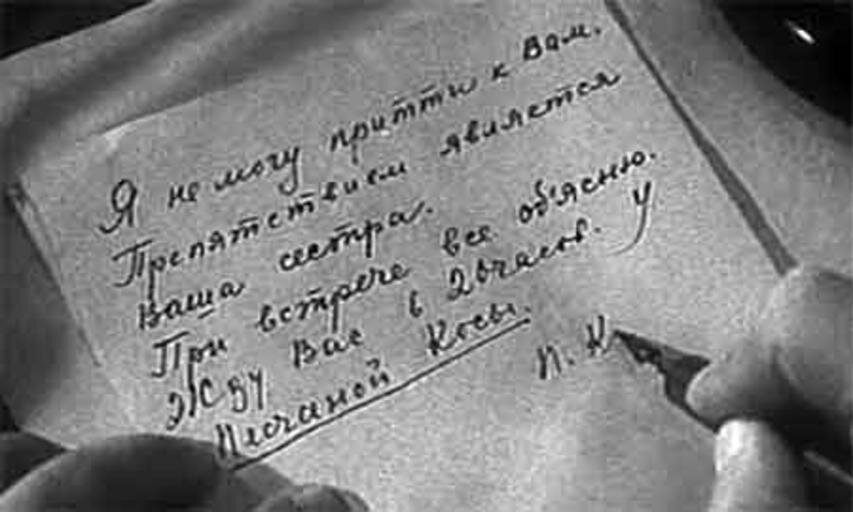 Я не могу притти к Вам.
Препятствием является
Ваша сестра.
При встрече все об'ясню.
Жду Вас в 20 часов. У
Песчаной Косы.
П. К